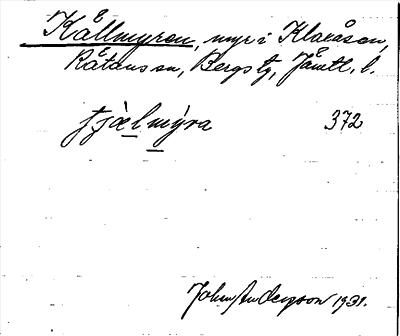 Kållmyren, myr i Klaxåsen,
Rätans sn, Bergs tg, Jämtl. l.
372
John Andersson 1931.